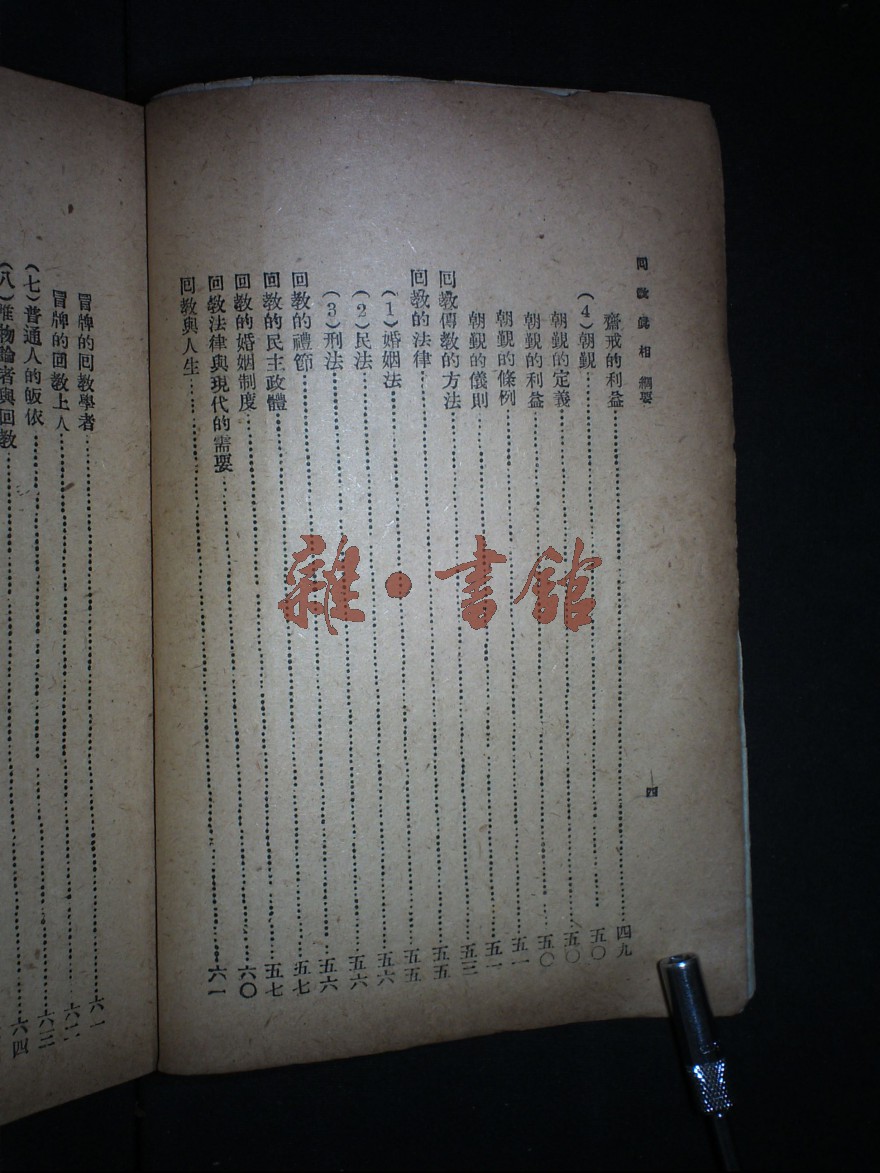 回教眞相 綱要
四
齋戒的利益……四九
（4）朝覲……五〇
朝覲的定義……五〇
朝覲的利益……五〇
朝覲的條例……五一
朝覲的儀則……五一
回教傳教的方法……五三
回教的法律……五五
（1）婚姻法……五五
（2）民法……五六
（3）刑法……五六
回教的禮節……五六
回教的民主政體……五七
回教的婚姻制度……五七
回教法律與現代的需要……六〇
回教與人生……六一
冒牌的回教學者……六一
冒牌的回教上人……六二
（七）普通人的皈依……六三
（八）唯物論者與回教……六四
雜·書館